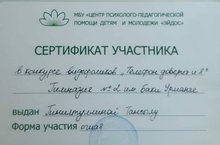 МБУ «ЦЕНТР ПСИХОЛОГО-ПЕДАГОГИЧЕСКОЙ
ПОМОЩИ ДЕТЯМ И МОЛОДЕЖИ «ЭЙДОС»
СЕРТИФИКАТ УЧАСТНИКА
в конкурсе видеороликов „Телефон доверия и Я"
Гимназия №2 им. Баки Урманче
выдан
Форма участия очная